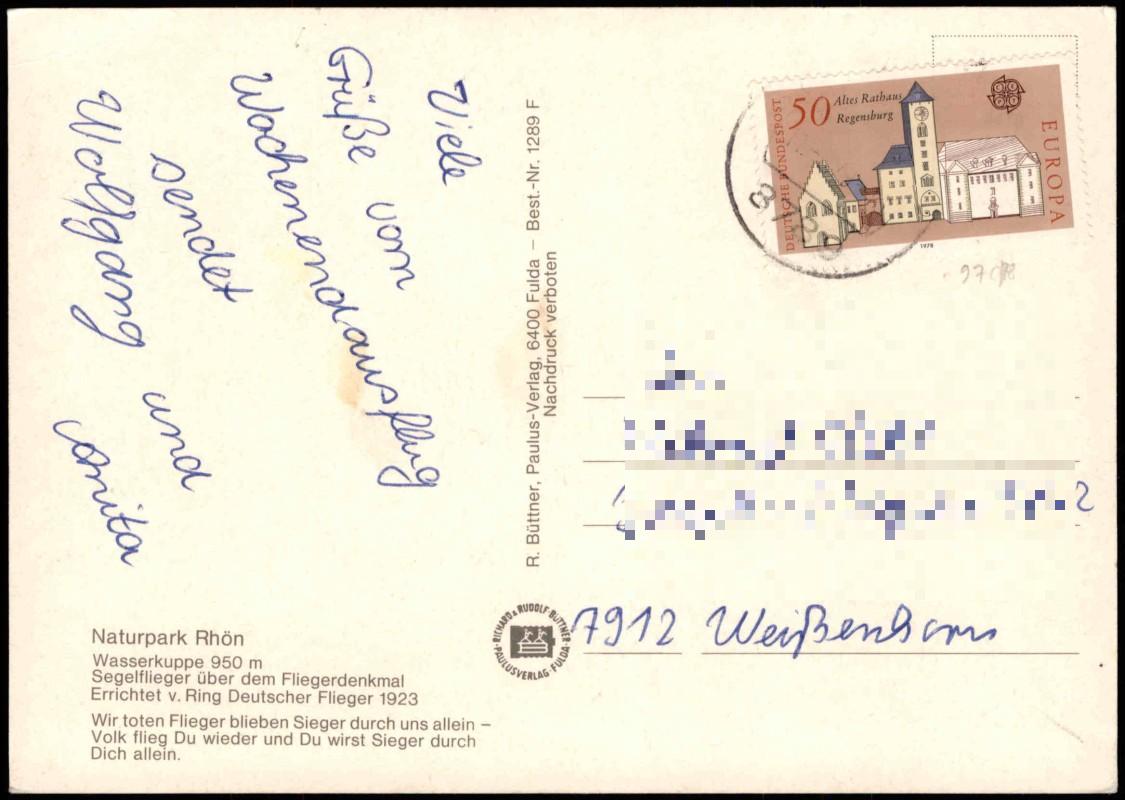 Viele
Grüße vom
Wochenendausflug
sendet
Wolfgang und
Naturpark Rhön
Wasserkuppe 950 m
Segelflieger über dem Fliegerdenkmal
Errichtet v. Ring Deutscher Flieger 1923
Wir toten Flieger blieben Sieger durch uns allein –
Volk flieg Du wieder und Du wirst Sieger durch
Dich allein.
R. Büttner, Paulus-Verlag, 6400 Fulda – Best.-Nr. 1289 F
Nachdruck verboten
RICHARD & RUDOLF BÜTTNER
PAULUSVERLAG · FULDA
DEUTSCHE BUNDESPOST
50 Altes Rathaus
Regensburg
EUROPA
1978
2
7912 Weißenhorn